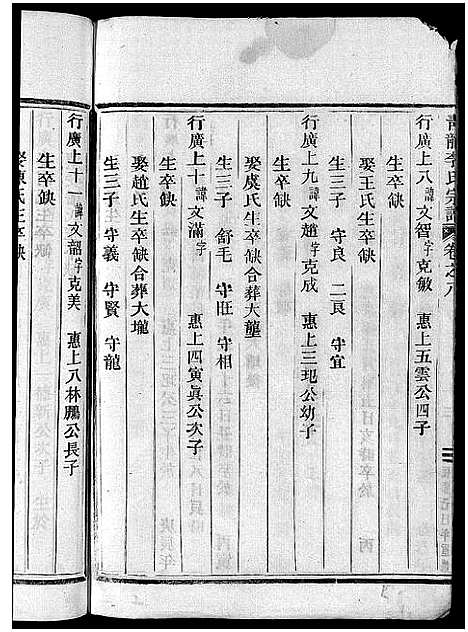 青龍李氏宗譜 卷之八
行廣上八諱文智字克敏 惠上五雲公四子
生卒缺
娶王氏生卒缺
生三子 守良 二良 守宜
行廣上九諱文趙字克成 惠上三玘公幼子
生卒缺
娶虞氏生卒缺合葬大壟
生三子 舒毛 守旺 守相
行廣上十諱文滿字 惠上四寅眞公次子
生卒缺
娶趙氏生卒缺合葬大壠
生三子 守義 守賢 守龍
行廣上十一諱文韶字克美 惠上八林鵬公長子
生卒缺
娶陳氏生卒缺